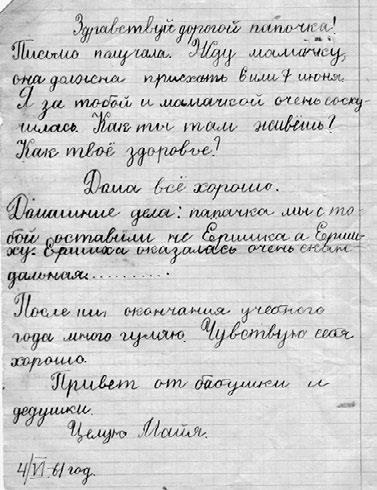 Здравствуй дорогой папочка!
Письмо получала. Жду мамачку,
она должна приехать 6 или 7 июня.
Я за тобой и мамачкой очень соску-
чилась. Как ты там живёшь?
Как твоё здоровье?
Дома всё хорошо.
Домашние дела: папачка мы с то-
бой оставили не Ершика а Ерши-
ху. Ершиха оказалась очень скан
дальная..........
После окончания учебного
года много гуляю. Чувствую себя
хорошо.
Привет от бабушки и
дедушки.
Целую Майя.
4/VI-61 год.